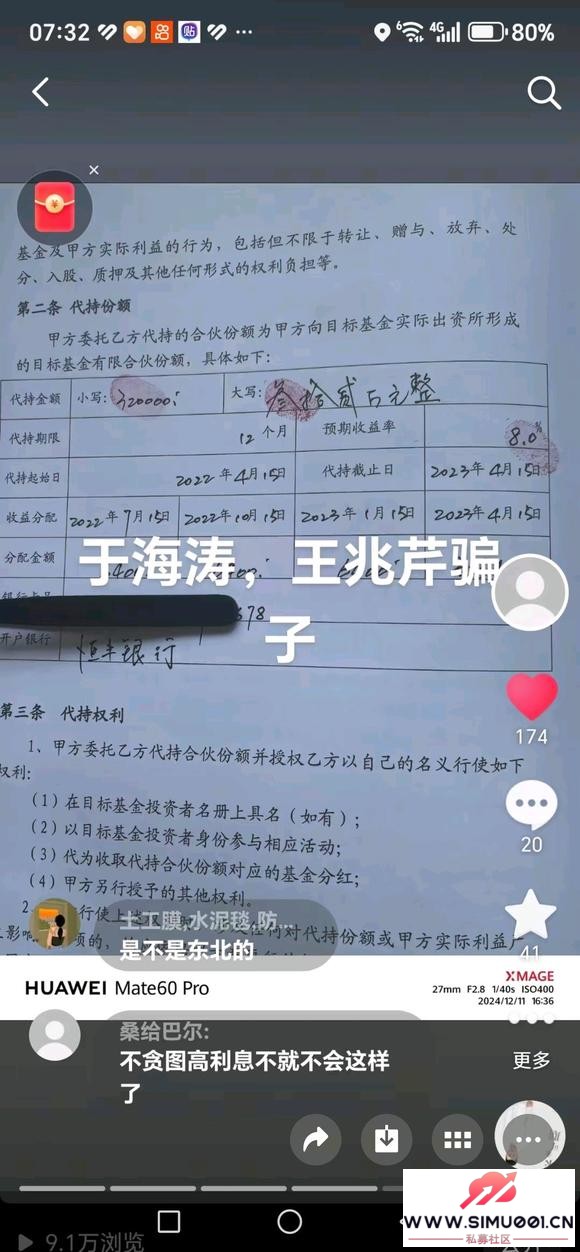 07:32
贴
6
4G
80%
基金及甲方实际利益的行为，包括但不限于转让、赠与、放弃、处
分、入股、质押及其他任何形式的权利负担等。
第二条 代持份额
甲方委托乙方代持的合伙份额为甲方向目标基金实际出资所形成
的目标基金有限合伙份额，具体如下：
代持金额 小写：320000 大写：叁拾贰万元整
代持期限 12个月 预期收益率 8.0%
代持起始日 2022年4月15日 代持截止日 2023年4月15日
收益分配 2022年7月15日 2022年10月15日 2023年1月15日 2023年4月15日
分配金额
于海涛，王兆芹骗
子
678
开户银行 恒丰银行
第三条 代持权利
1、甲方委托乙方代持合伙份额并授权乙方以自己的名义行使如下
权利：
（1）在目标基金投资者名册上具名（如有）；
（2）以目标基金投资者身份参与相应活动；
（3）代为收取代持合伙份额对应的基金分红；
（4）甲方另行授予的其他权利。
174
20
41
土工膜,水泥毯,防...
是不是东北的
HUAWEI Mate60 Pro
XMAGE
27mm F2.8 1/40s ISO400
2024/12/11 16:36
桑给巴尔:
不贪图高利息不就不会这样
了
更多
9.1万浏览
WWW.SIMU001.CN
私募社区